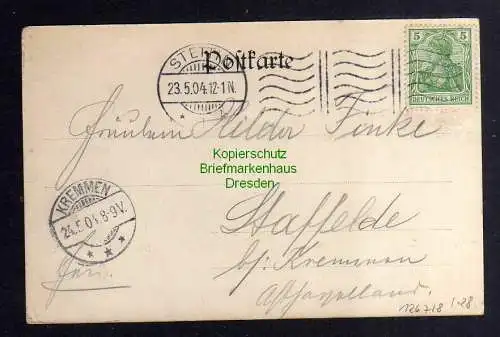 Postkarte
STETTIN
23.5.04.12-1N.
5
DEUTSCHES REICH
Fräulein Hilda Finke
Kopierschutz
Briefmarkenhaus
Dresden
Staffelde
KREMMEN
24.5.04.8-9V.
bei Kremmen
126718 1-28